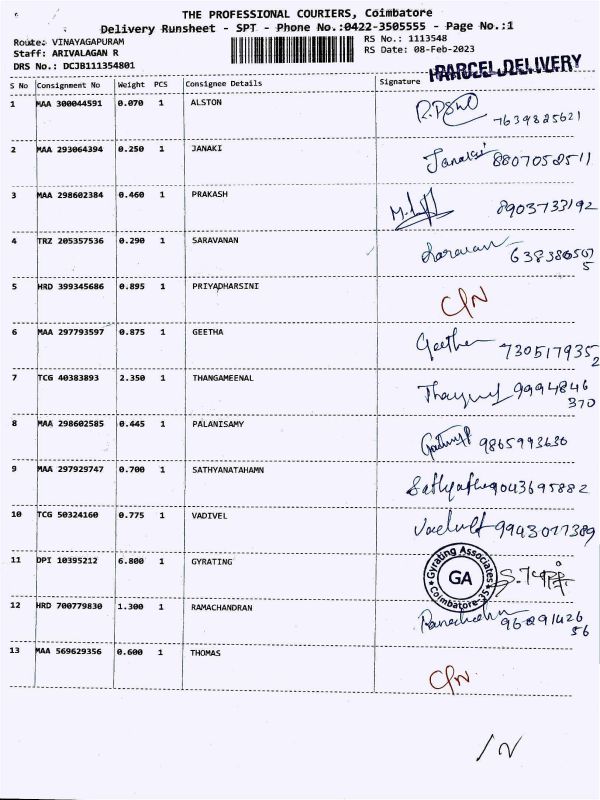 THE PROFESSIONAL COURIERS, Coimbatore
Delivery Runsheet - SPT - Phone No.:0422-3505555 - Page No.:1
Route: VINAYAGAPURAM RS No.: 1113548
Staff: ARIVALAGAN R RS Date: 08-Feb-2023
DRS No.: DCJB111354801
PARCEL DELIVERY
S No Consignment No Weight PCS Consignee Details Signature
1 MAA 300044591 0.070 1 ALSTON
7639825621
2 MAA 293064394 0.250 1 JANAKI Janaki 8807052511
3 MAA 298602384 0.460 1 PRAKASH 8903733192
4 TRZ 205357536 0.290 1 SARAVANAN Saravanan
5 HRD 399345686 0.895 1 PRIYADHARSINI
6 MAA 297793597 0.875 1 GEETHA Geetha 730517935
2
7 TCG 40383893 2.350 1 THANGAMEENAL 9994846
370
8 MAA 298602585 0.445 1 PALANISAMY 9865993630
9 MAA 297929747 0.700 1 SATHYANATAHAMN 9043695882
10 TCG 50324160 0.775 1 VADIVEL 9943077389
11 DPI 10395212 6.800 1 GYRATING Gyrating Associates GA Coimbatore-35
12 HRD 700779830 1.300 1 RAMACHANDRAN
56
13 MAA 569629356 0.600 1 THOMAS